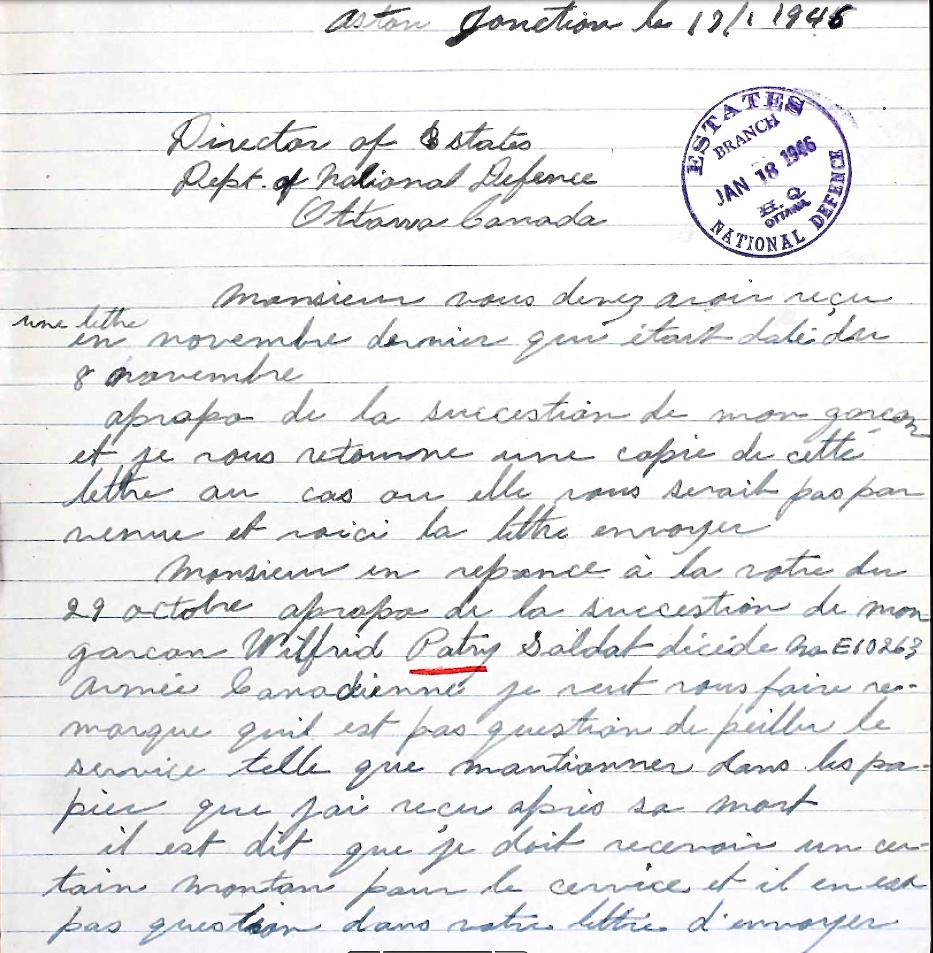 Aston Jonction le 17/1 1946
Director of Estates
Dept. of National Defence
Ottawa Canada
ESTATES
BRANCH
JAN 18 1946
H.Q
OTTAWA
NATIONAL DEFENCE
Monsieur vous devez avoir reçu
une lettre
en novembre dernier qui était daté du
8 novembre
apropo de la succestion de mon garçon
et je vous retourne une copie de cette
lettre au cas ou elle vous serait pas par
venue et voici la lettre envoyer
Monsieur en reponce à la votre du
29 octobre apropo de la succestion de mon
garcon Wilfrid Patry Soldat décéde No E10263
Armée Canadienne je veut vous faire re-
marque quil est pas question de peiller le
service telle que mantionner dans les pa-
pier que jai reçu après sa mort
il est dit que je doit recevoir un cer-
tain montan pour le cervice et il en est
pas question dans votre lettre d'envoyer